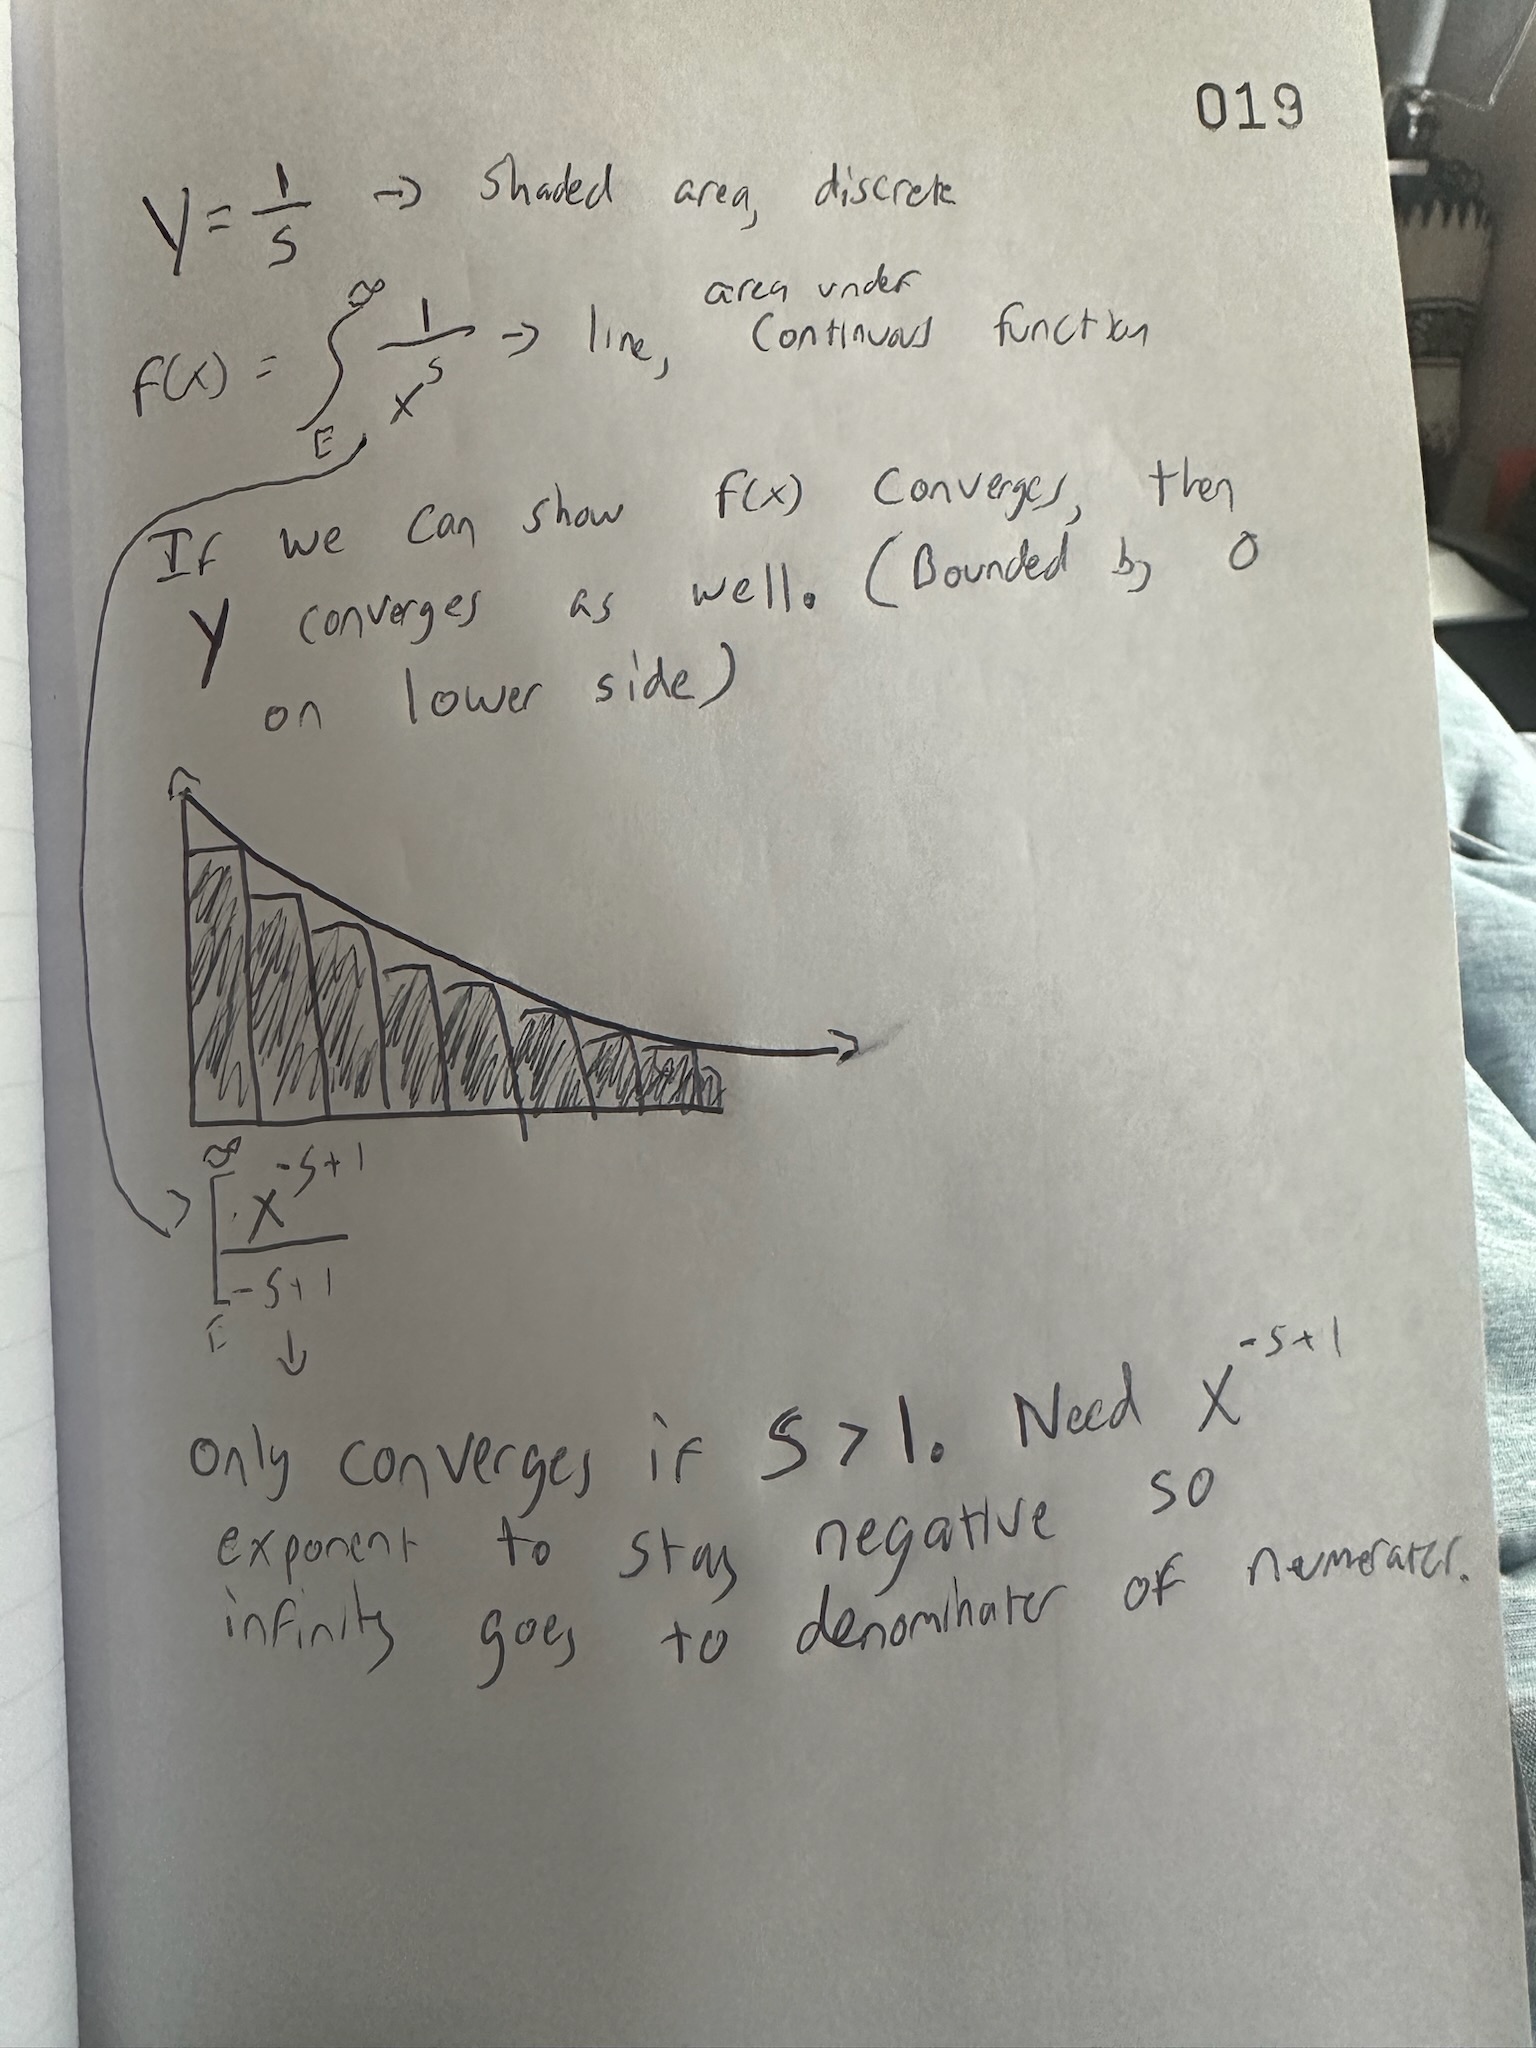 019
Y = 1/s → Shaded area, discrete
f(x) = ∫_E^∞ 1/x^s → line, area under continuous function
If we can show f(x) converges, then
Y converges as well. (Bounded by 0
on lower side)
[x^{-s+1}/-s+1]_E^∞
↓
only converges if s > 1. Need x^{-s+1}
exponent to stay negative so
infinity goes to denominater of numerater.